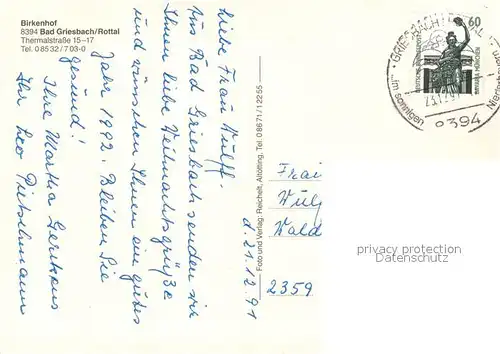 Birkenhof
8394 Bad Griesbach/Rottal
Thermalstraße 15-17
Tel. 08532/703-0
d. 21.12.91
Liebe Frau Wulff.
Aus Bad Griesbach senden wir
Ihnen liebe Weihnachtsgrüße
und wünschen Ihnen ein gutes
Jahr 1992. Bleiben Sie
gesund!
Ihre Martha
Ihr Leo
Foto und Verlag: Reichelt, Altötting, Tel. 08671/12255
60
GRIESBACH I
...im sonnigen
8394
Wald
2359
privacy protection
Datenschutz